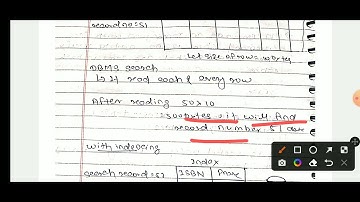 record no = 51
Let size of row = 10 bytes
DBMS search
↳ It read each & every row
After reading 50 x 10
= 500 bytes : it will find
record number 51 data
with indexing
Index
search record = 51
ISBN